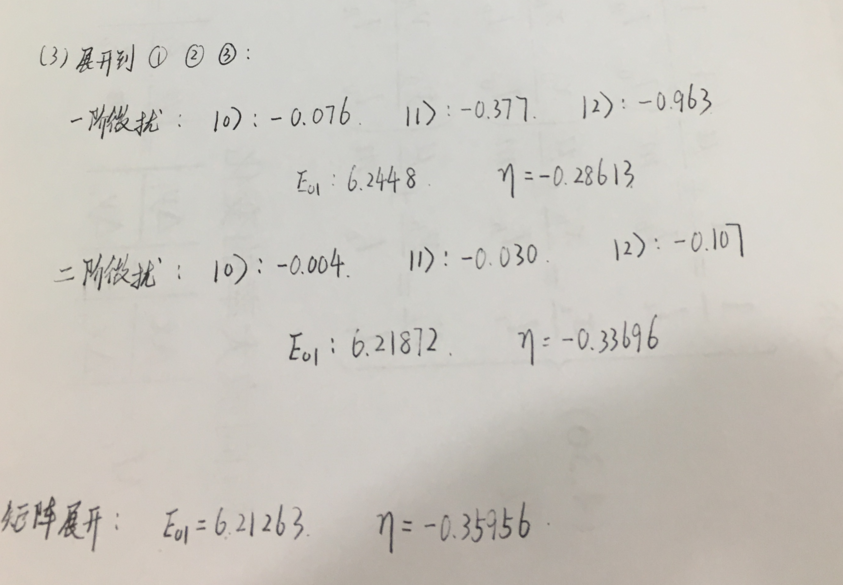 (3) 展开到 ① ② ③:
一阶微扰: |0〉: -0.076. |1〉: -0.377. |2〉: -0.963
E01: 6.2448. η = -0.28613
二阶微扰: |0〉: -0.004. |1〉: -0.030. |2〉: -0.107
E01: 6.21872. η = -0.33696
矩阵展开: E01 = 6.21263. η = -0.35956.